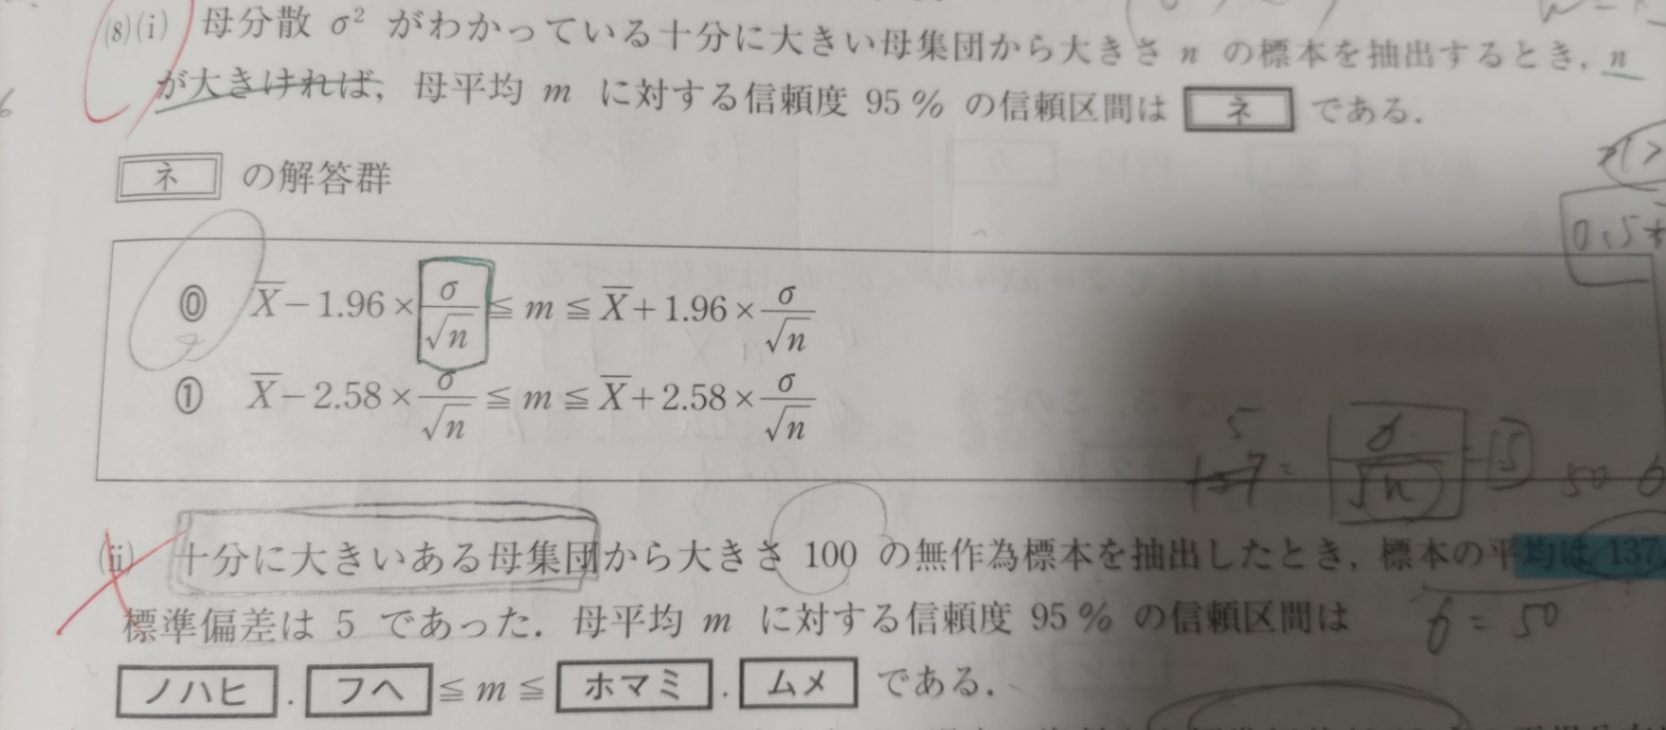 (8)(i) 母分散 σ² がわかっている十分に大きい母集団から大きさ n の標本を抽出するとき, n
が大きければ, 母平均 m に対する信頼度 95 % の信頼区間は ネ である.
ネ の解答群
0.5
⓪ X̄ − 1.96 × σ/√n ≦ m ≦ X̄ + 1.96 × σ/√n
① X̄ − 2.58 × σ/√n ≦ m ≦ X̄ + 2.58 × σ/√n
5
σ/√n = 5 50
(ii) 十分に大きいある母集団から大きさ 100 の無作為標本を抽出したとき, 標本の平均は 137
標準偏差は 5 であった. 母平均 m に対する信頼度 95 % の信頼区間は
6 = 50
ノハヒ . フヘ ≦ m ≦ ホマミ . ムメ である.